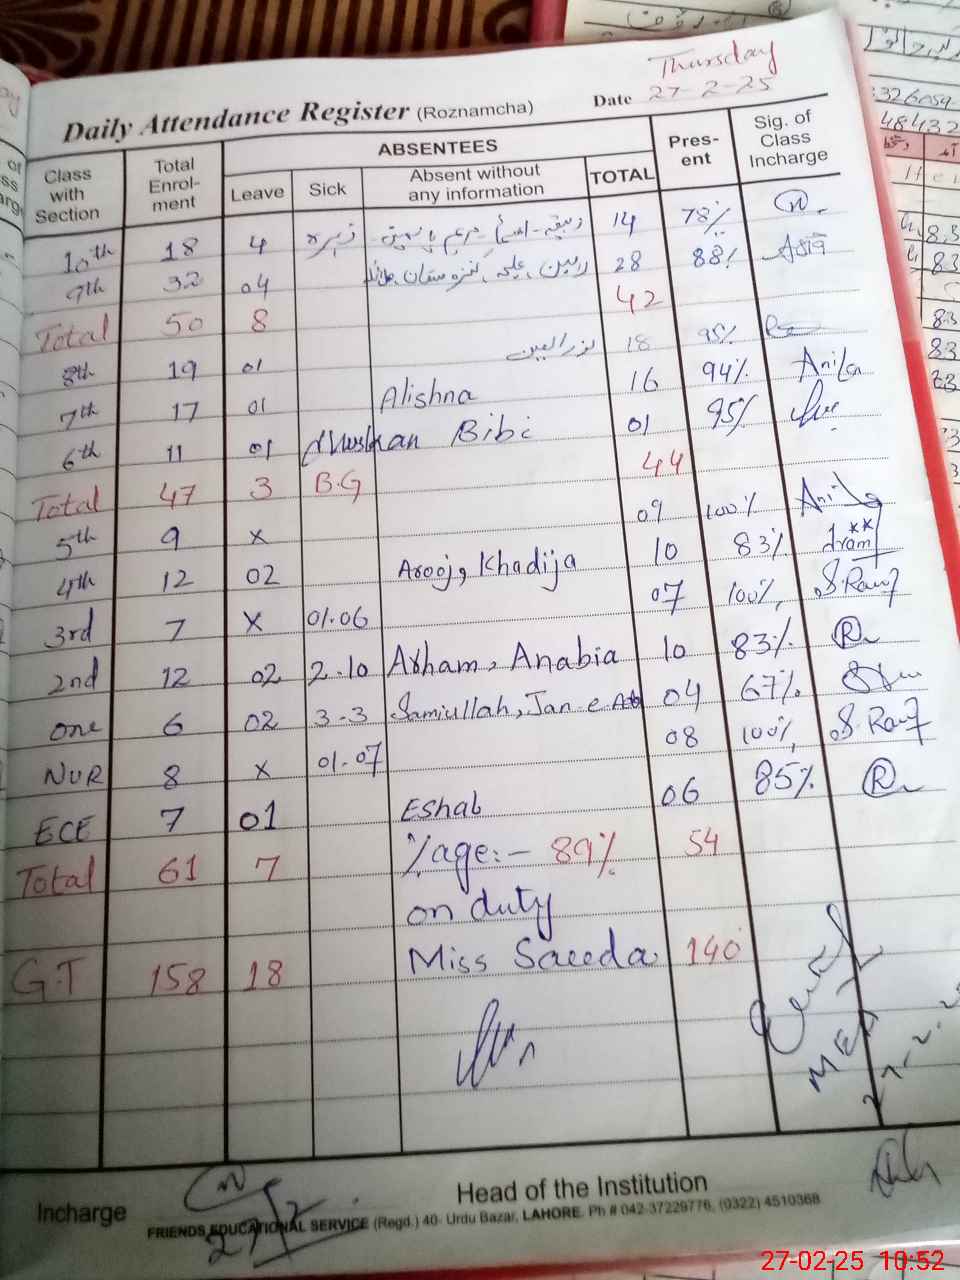 Thursday
Daily Attendance Register (Roznamcha) Date 27-2-25
Class with Section Total Enrol-ment ABSENTEES Pres-ent Sig. of Class Incharge
Leave Sick Absent without any information TOTAL
10th 18 4 14 78%
9th 32 04 28 88% Asia
Total 50 8 42
8th 19 01 نورالعین 18 95%
7th 17 01 Alishna 16 94% Anila
6th 11 01 Muskan Bibi 01 95%
Total 47 3 B.G 44
5th 9 x 09 100% Anila
4th 12 02 Arooj, Khadija 10 83% Iram
3rd 7 x 01.06 07 100% S.Rauf
2nd 12 02 2.10 Arham, Anabia 10 83% R
One 6 02 3-3 Samiullah, Jan-e 04 67%
NUR 8 x 01.07 08 100% S.Rauf
ECE 7 01 Eshal 06 85% R
Total 61 7 %age:- 89% 54
on duty
G.T 158 18 Miss Saeeda 140
MEA
Incharge Head of the Institution
FRIENDS EDUCATIONAL SERVICE (Regd.) 40- Urdu Bazar, LAHORE. Ph # 042-37229776, (0322) 4510368
27-02-25 10:52